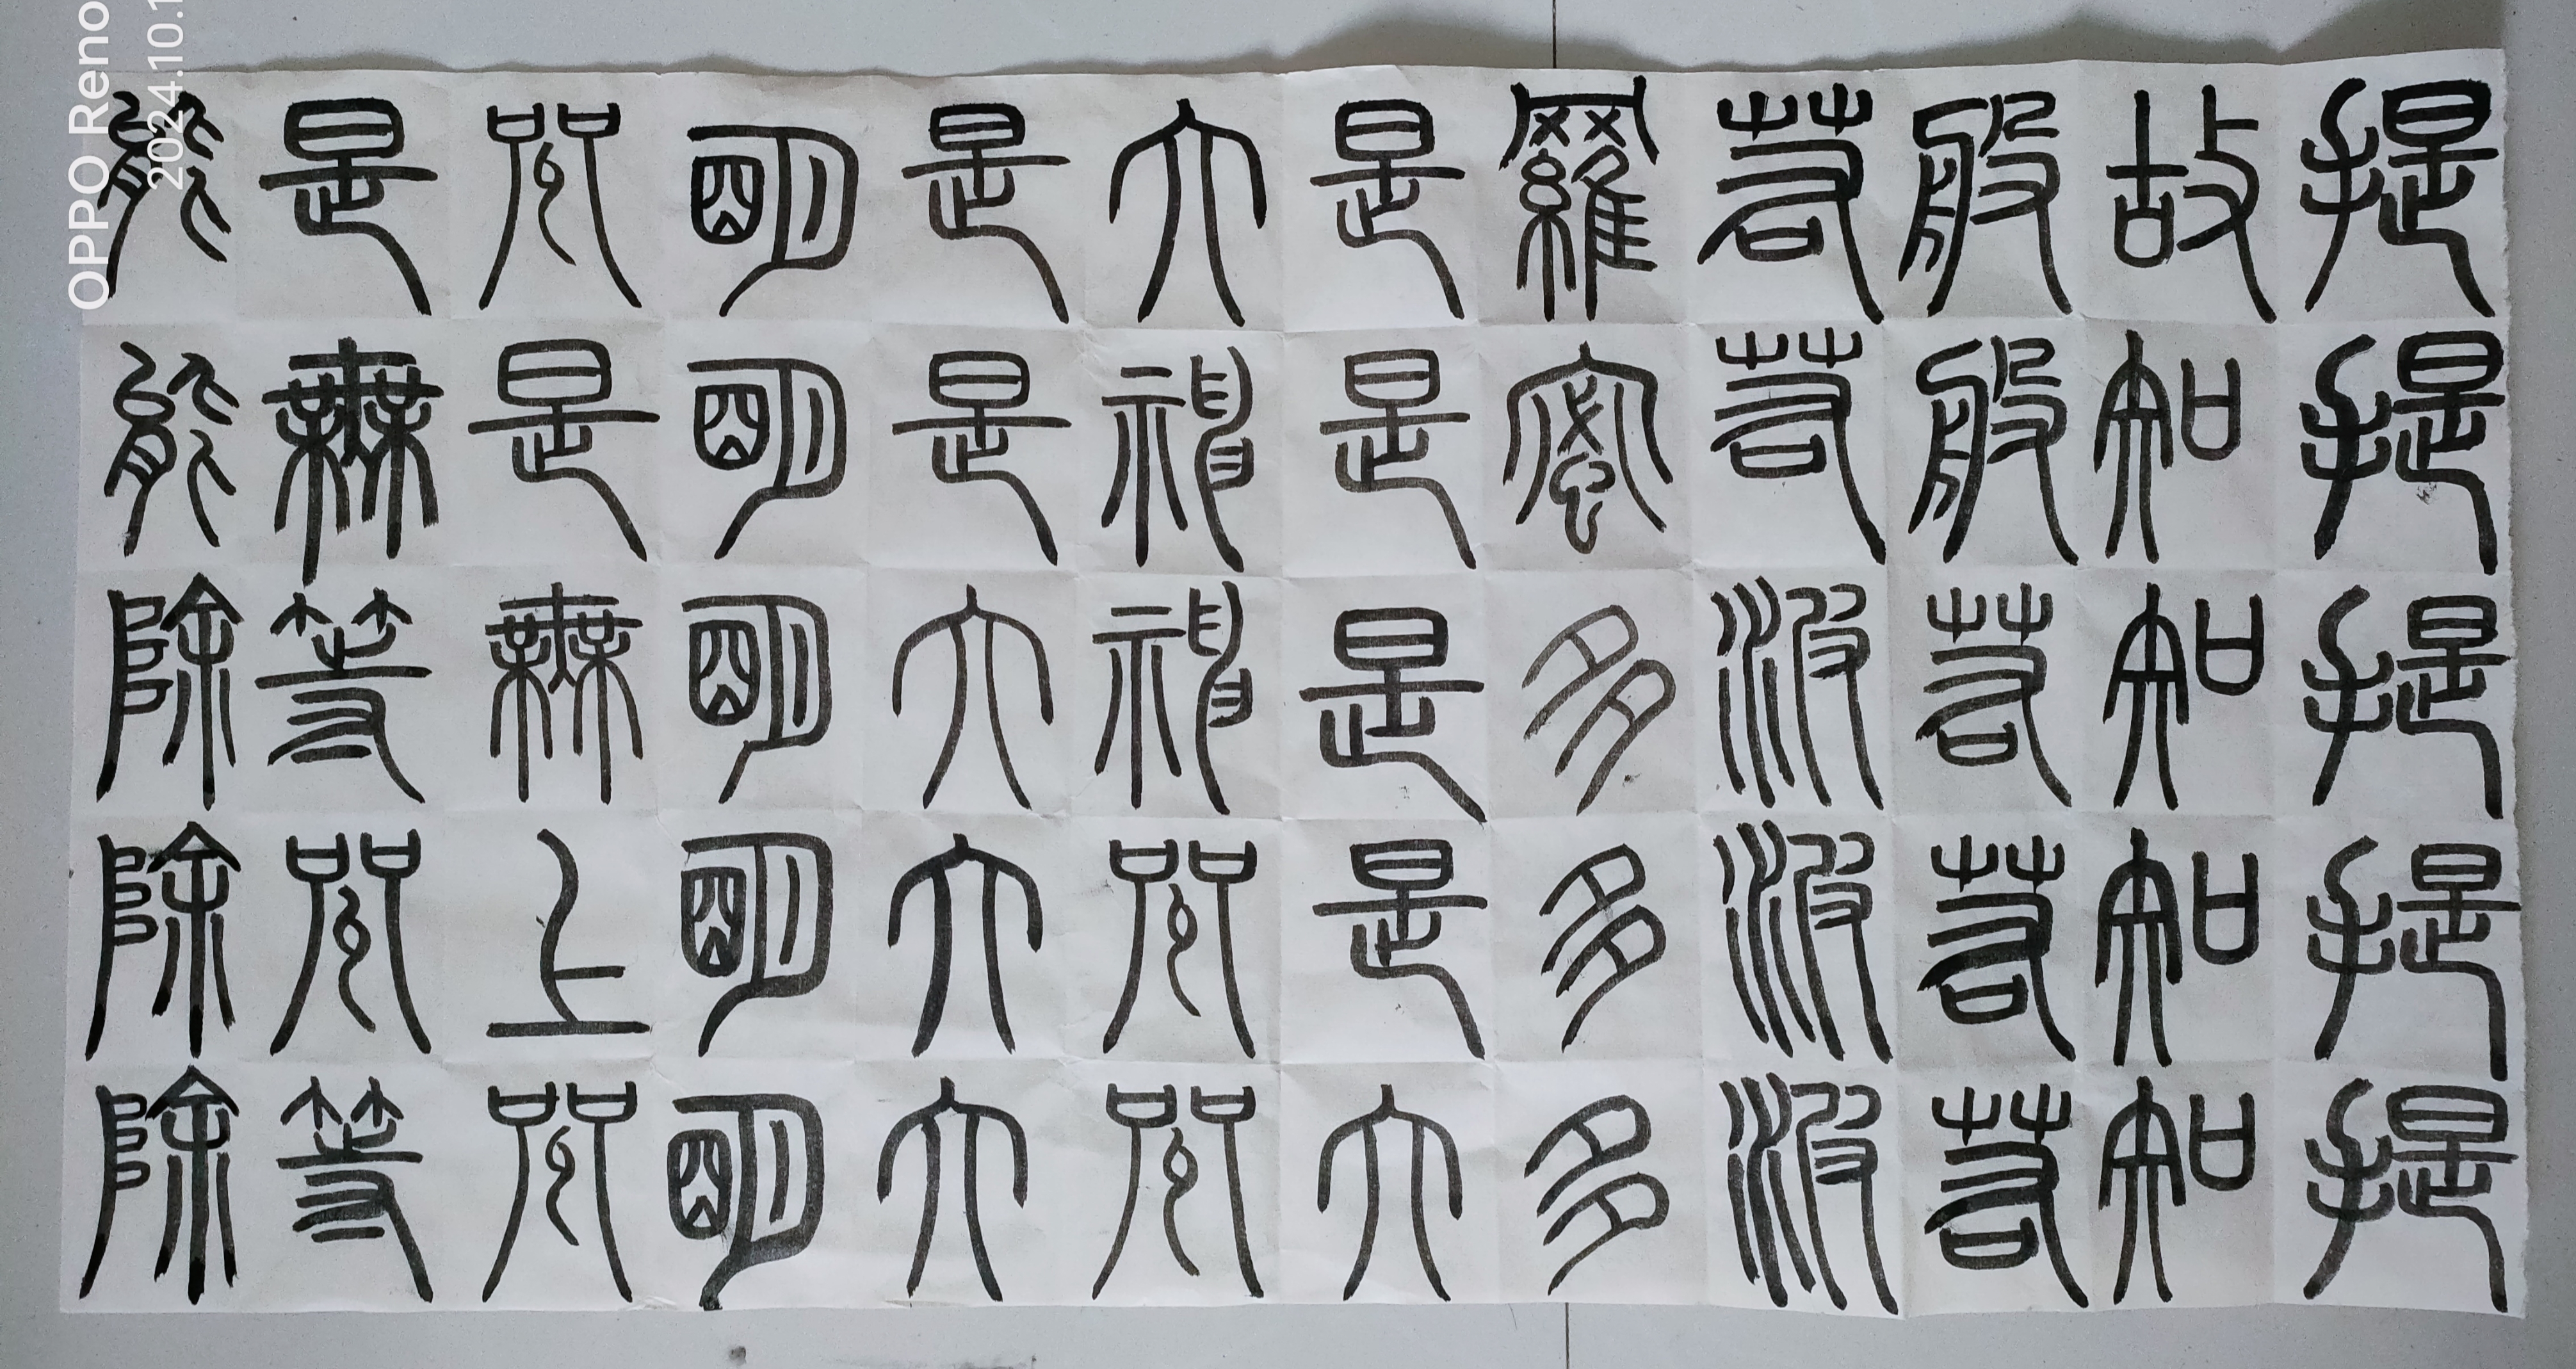 提提提提提
故知知知知
般般若若若
若若波波波
羅蜜多多多
是是是是大
大神神咒咒
是是大大大
明明明明明
咒是無上咒
是無等咒等
能能除除除
OPPO Reno
2024.10.1